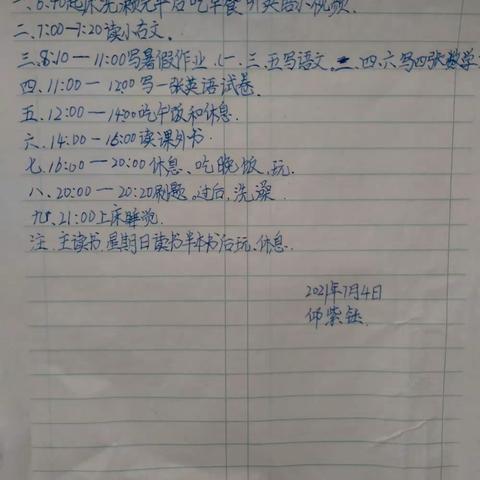 一、6:40起床洗漱完毕后吃早餐听英语小视频.
二、7:00-7:20读小古文.
三、8:10—11:00写暑假作业.(一.三.五写语文.二.四.六写四张数学
四、11:00—1200写一张英语试卷.
五、12:00—14:00吃午饭和休息.
六、14:00-16:00读课外书.
七、16:00—20:00休息、吃晚饭,玩.
八、20:00—20:20刷题.过后,洗澡.
九、21:00上床睡觉.
注:主读书.星期日读书半本书后玩、休息.
2021年7月4日
紫钰